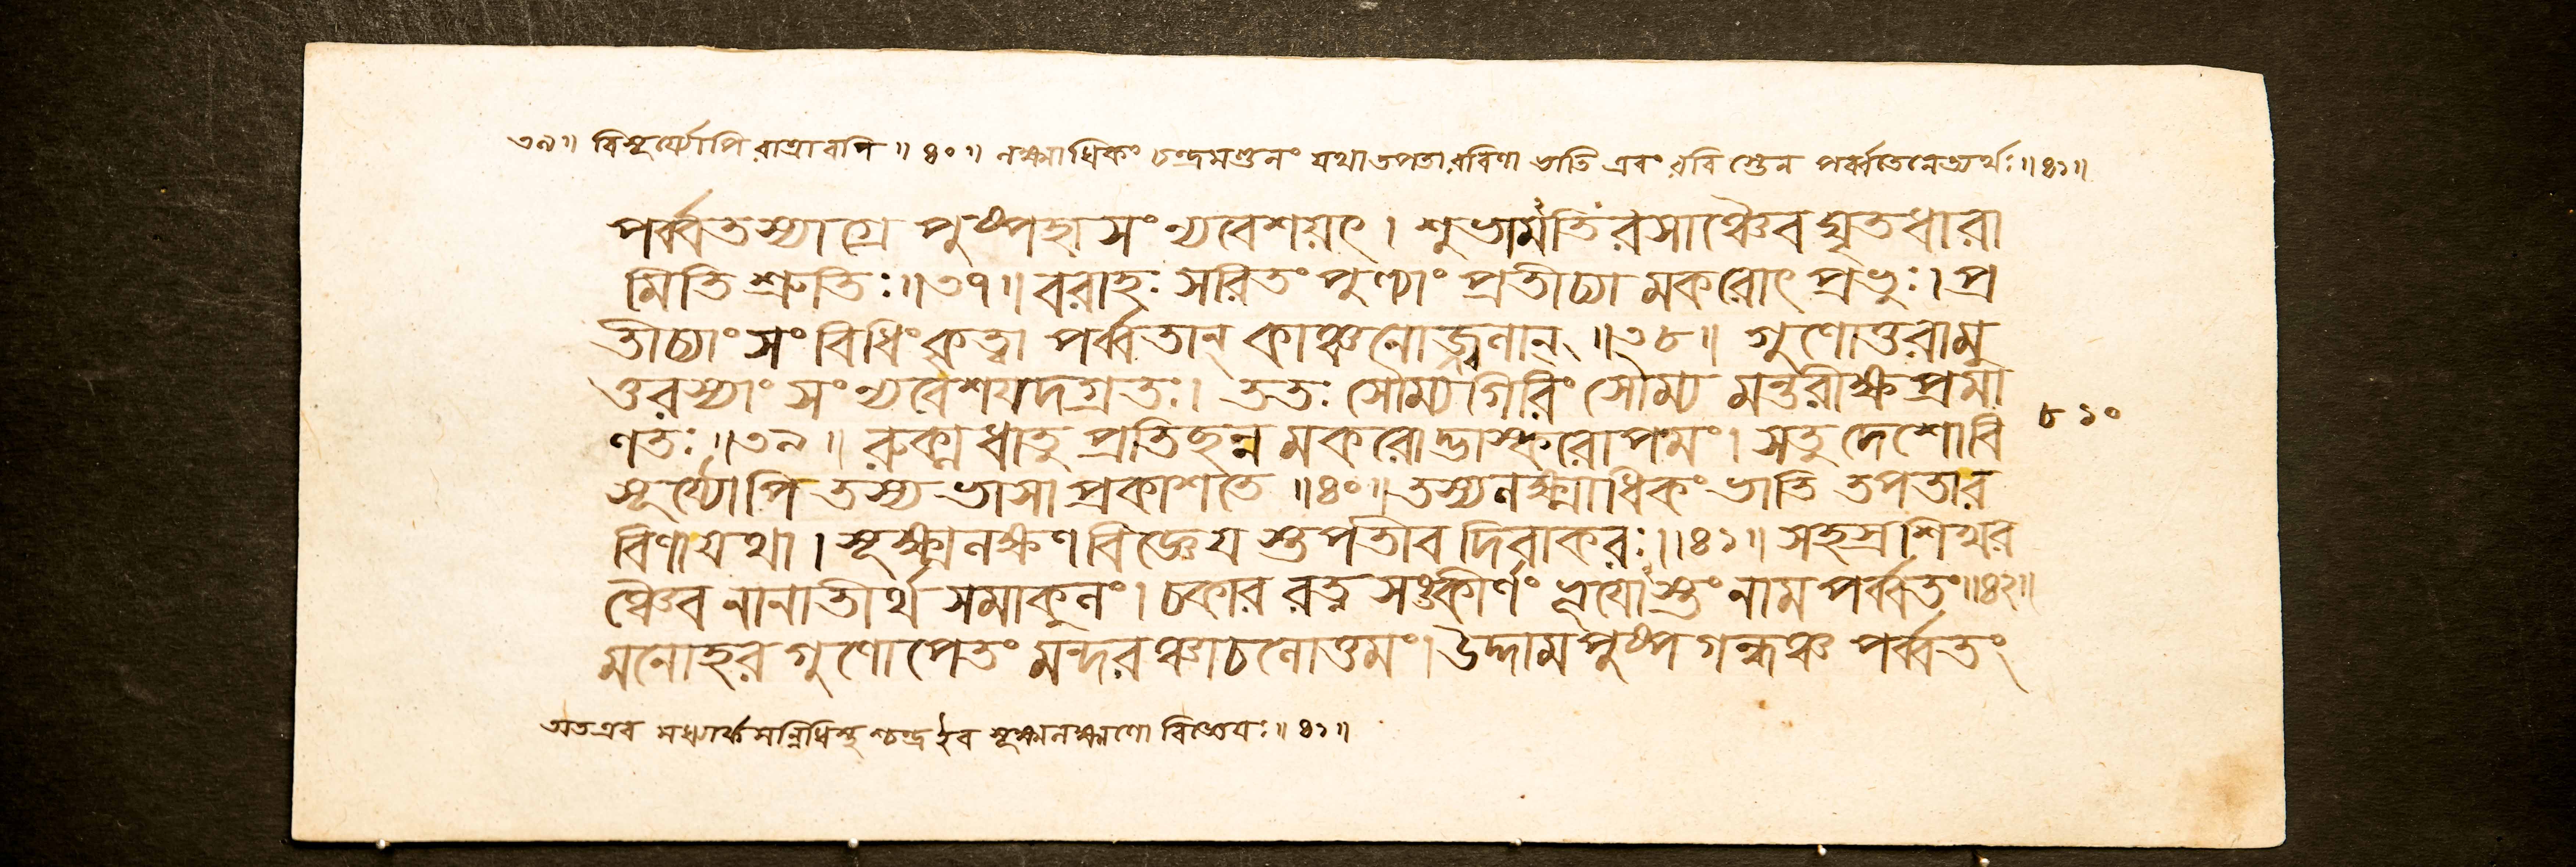 ৩৯॥ বিসূর্য্যোপি রাত্রাবপি ॥ ৪০ ॥ লক্ষ্মাধিকং চন্দ্রমণ্ডলং যথা তপতা রবিণা ভাতি এবং রবিস্তেন পর্ব্বতেনেত্যর্থঃ ॥ ৪১ ॥
পর্ব্বতস্যাগ্রে পুষ্পহাসং ন্যবেশয়ৎ । শুভার্মতিরসাঞ্চৈব ঘৃতধারা
মিতি শ্রুতিঃ ॥ ৩৭ ॥ বরাহঃ সরিতং পুণ্যাং প্রতীচ্যামকরোৎ প্রভুঃ । প্র
তীচ্যাং সংবিধিং কৃত্বা পর্ব্বতান্ কাঞ্চনোজ্জ্বলান্ ॥ ৩৮ ॥ গুণোত্তরামু
ত্তরস্যাং সংন্যবেশয়দগ্রতঃ । ততঃ সৌম্যগিরিং সৌম্য মন্তরীক্ষপ্রমা
ণতঃ ॥ ৩৯ ॥ রুক্মধাতুপ্রতিছন্নমকরোদ্ভাস্করোপমং । সতু দেশোবি
সূর্য্যোপি তস্য ভাসা প্রকাশতে ॥ ৪০ ॥ তস্যলক্ষ্মাধিকং ভাতি তপতার
বিণা যথা । সূক্ষ্মলক্ষণবিজ্ঞেয়স্তপতীব দিবাকরঃ ॥ ৪১ ॥ সহস্রশিখর
ঞ্চৈব নানাতীর্থসমাকুলং । চকার রত্নসঙ্কীর্ণং ভূয়োস্তং নাম পর্ব্বতং ॥ ৪২ ॥
মনোহরগুণোপেতং মন্দরঞ্চাচলোত্তমং । উদ্দামপুষ্পগন্ধঞ্চ পর্ব্বতং
৮১০
অতএব মধ্যার্কসন্নিধিস্থ শ্চন্দ্র ইব সূক্ষ্মলক্ষণো বিজ্ঞেয়ঃ ॥ ৪১ ॥